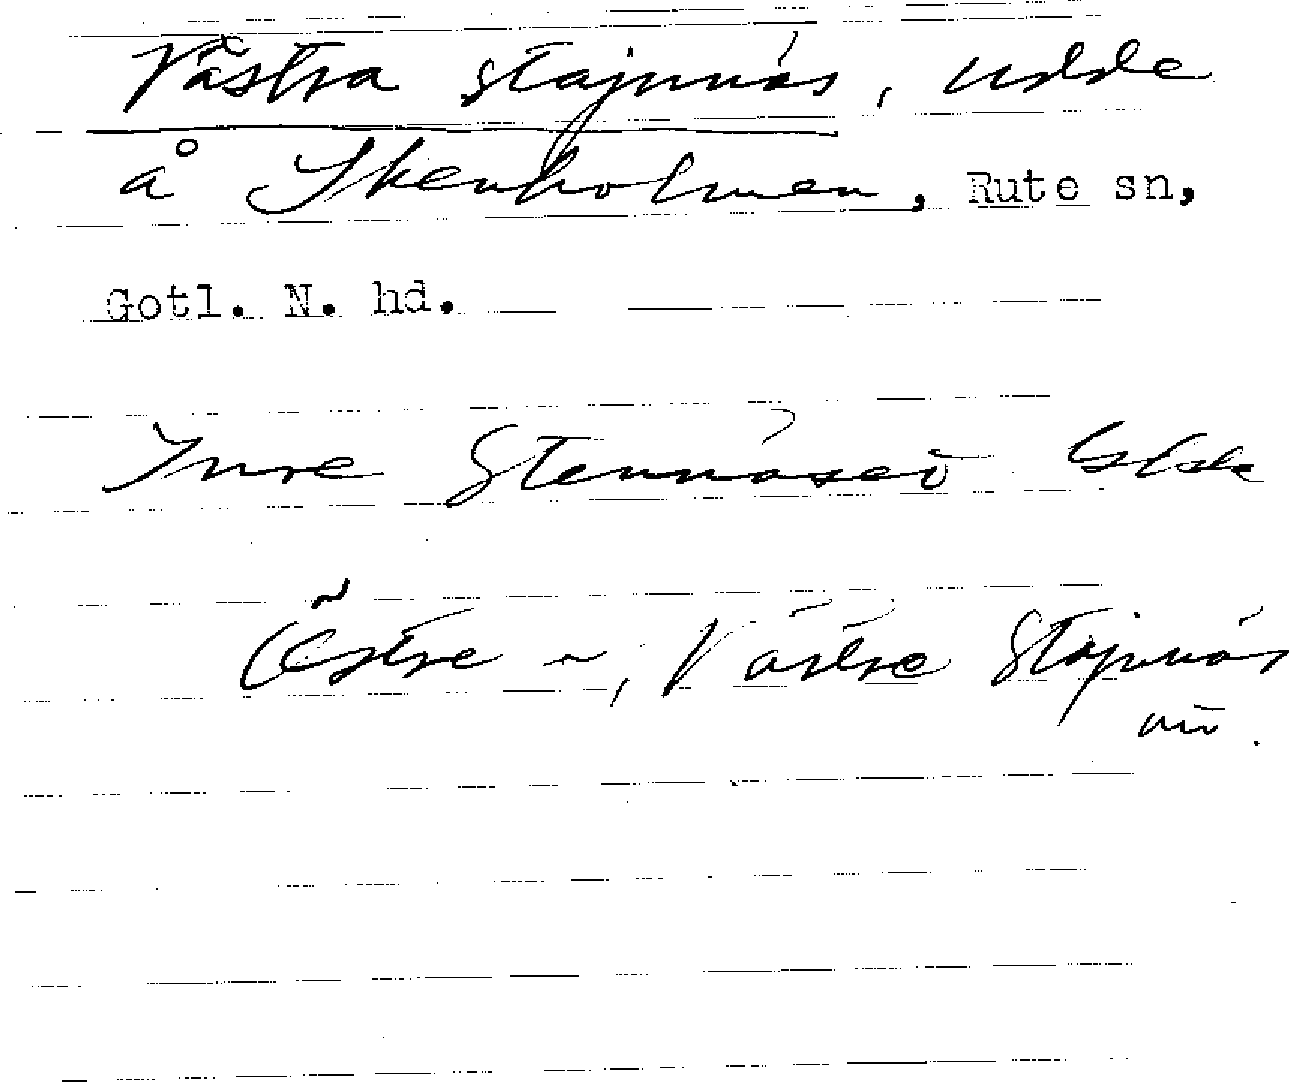 Västra Stajnnäs, udde
å Skenholmen, Rute sn,
Gotl. N. hd.
Inre Stennäset
Östre ~, Västre Stajnnäs